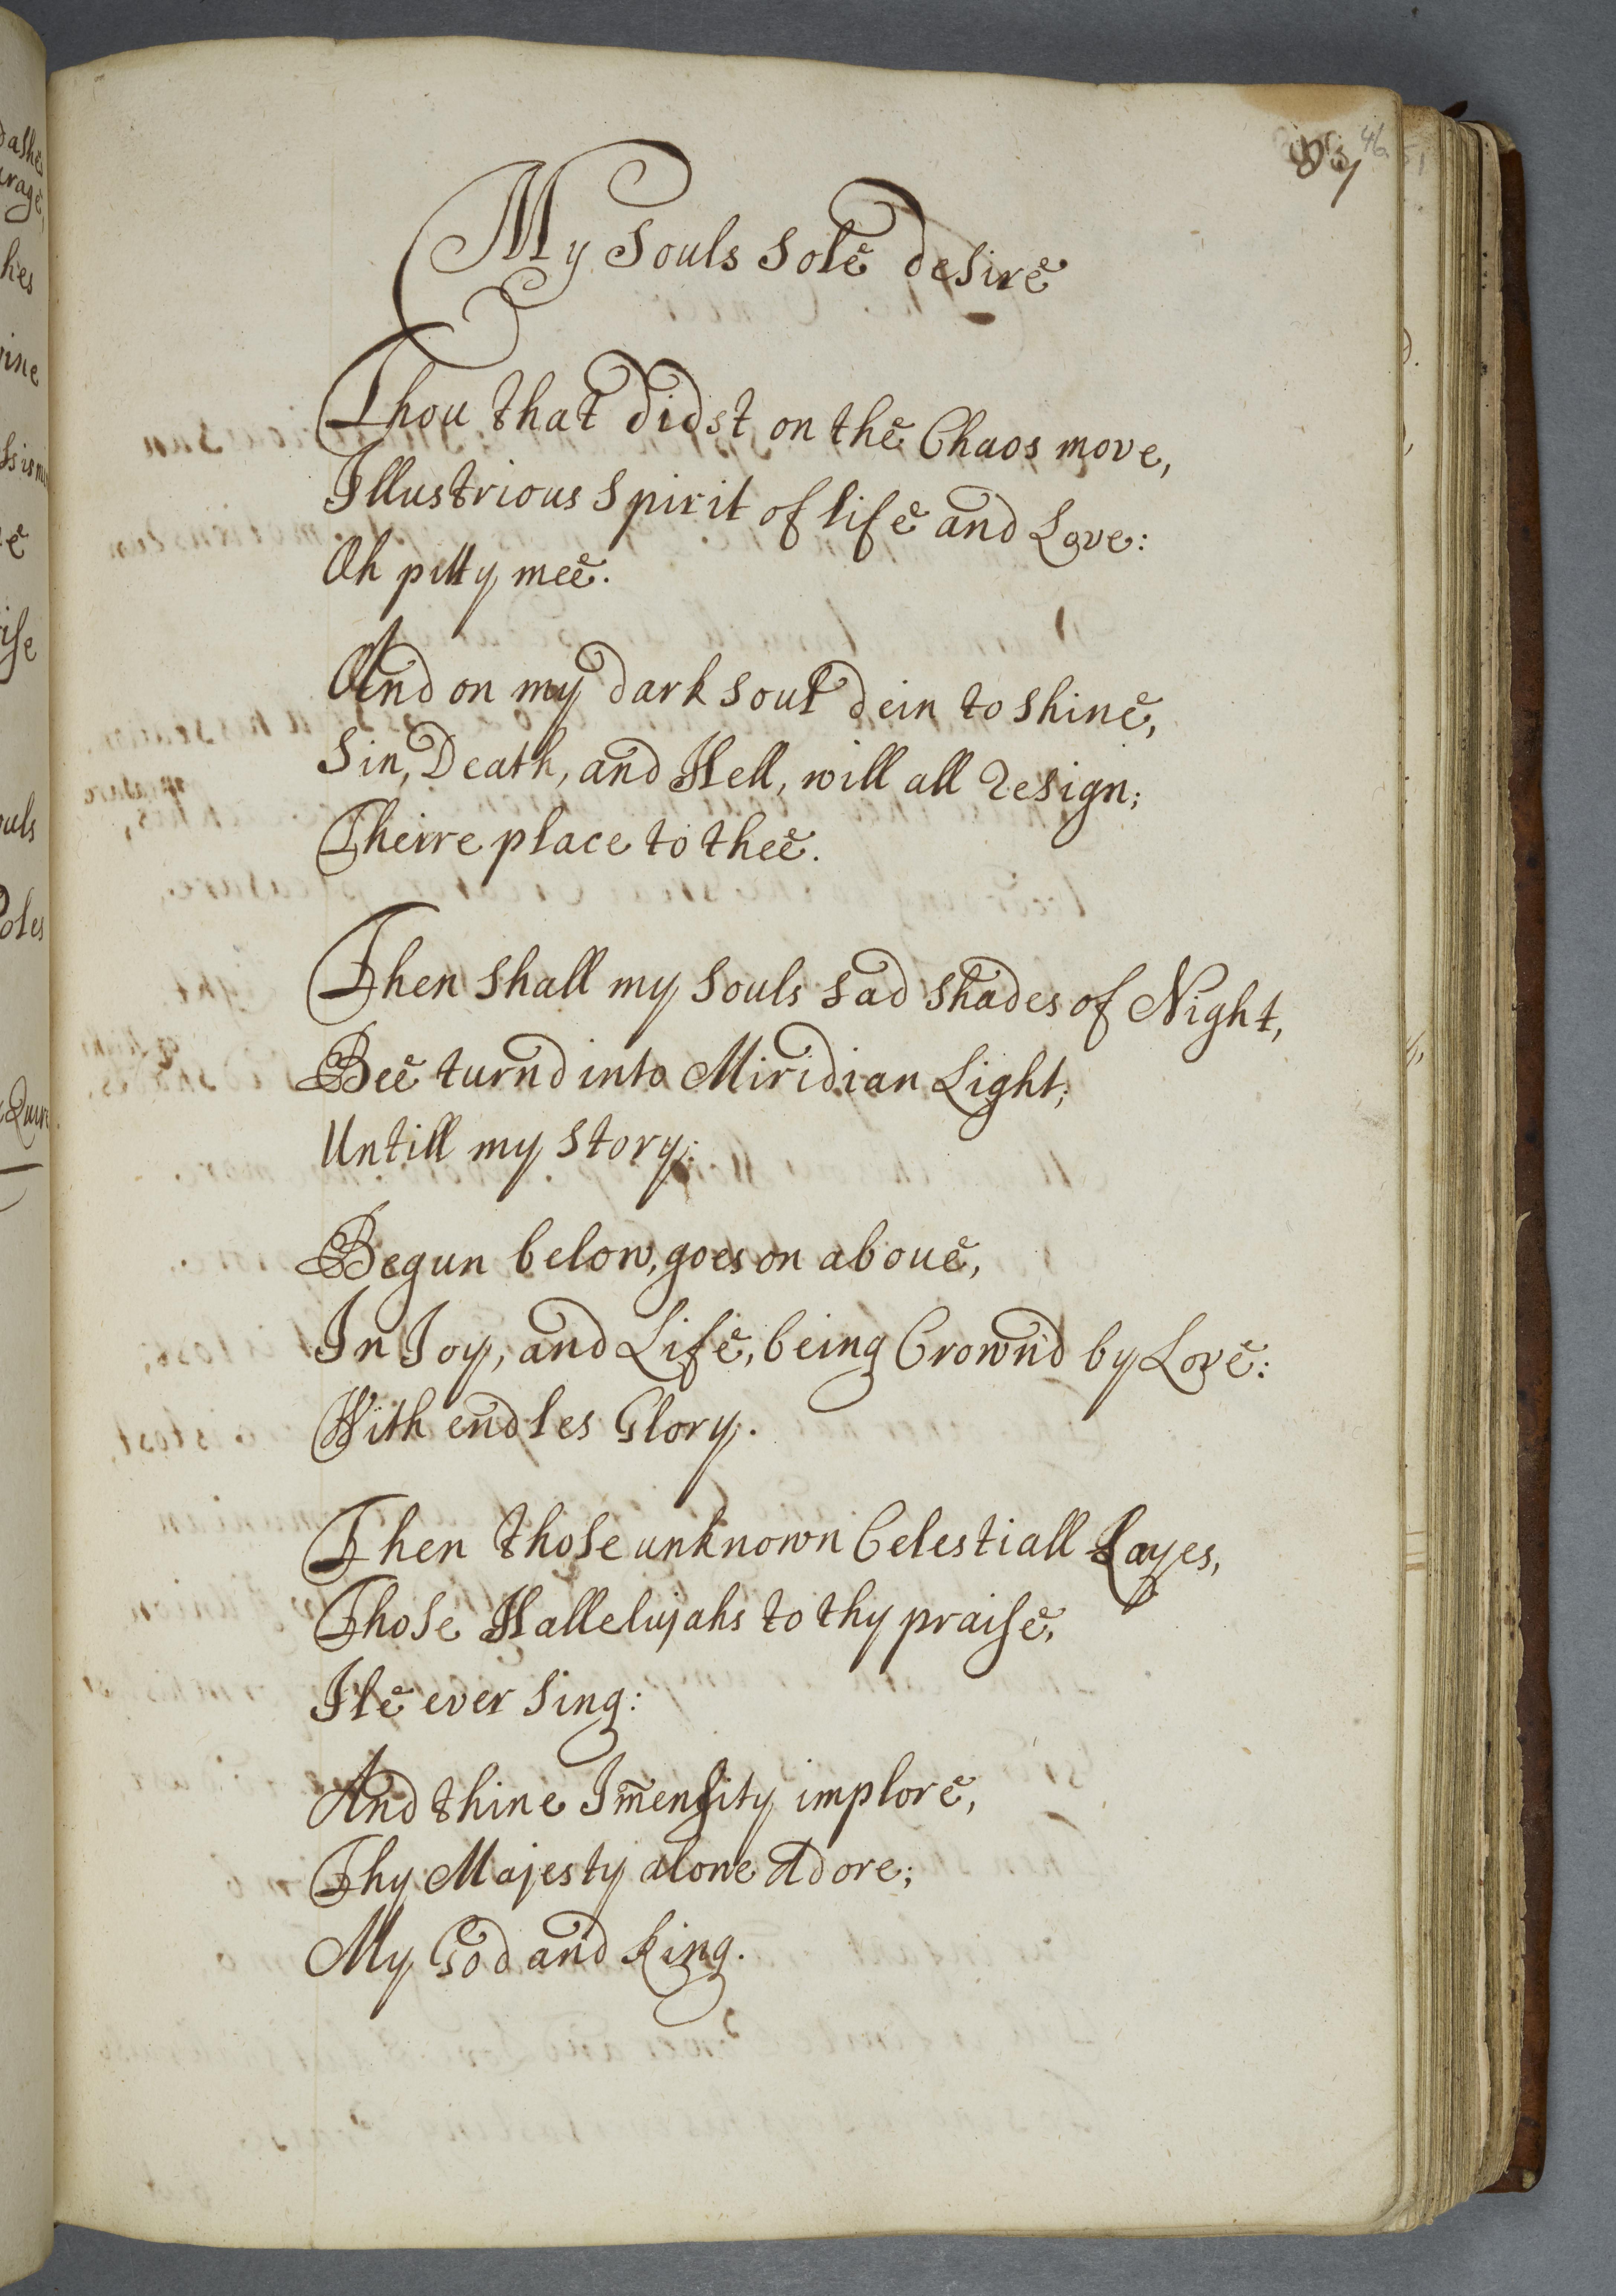 46
My Souls Sole desire
Thou that didst on the Chaos move,
Illustrious Spirit of life and Love:
Oh pitty mee.
And on my dark soul dein to shine,
Sin, Death, and Hell, will all Resign;
Theire place to thee.
Then shall my Souls sad shades of Night,
Bee turnd into Miridian Light;
Untill my Story:
Begun below, goes on aboue,
In Joy, and Life, being Crown'd by Love:
With endles Glory.
Then those unknown Celestiall Layes,
Those Hallelujahs to thy praise,
Ile ever Sing:
And thine Im̅ensity implore,
Thy Majesty alone Adore;
My God and King.